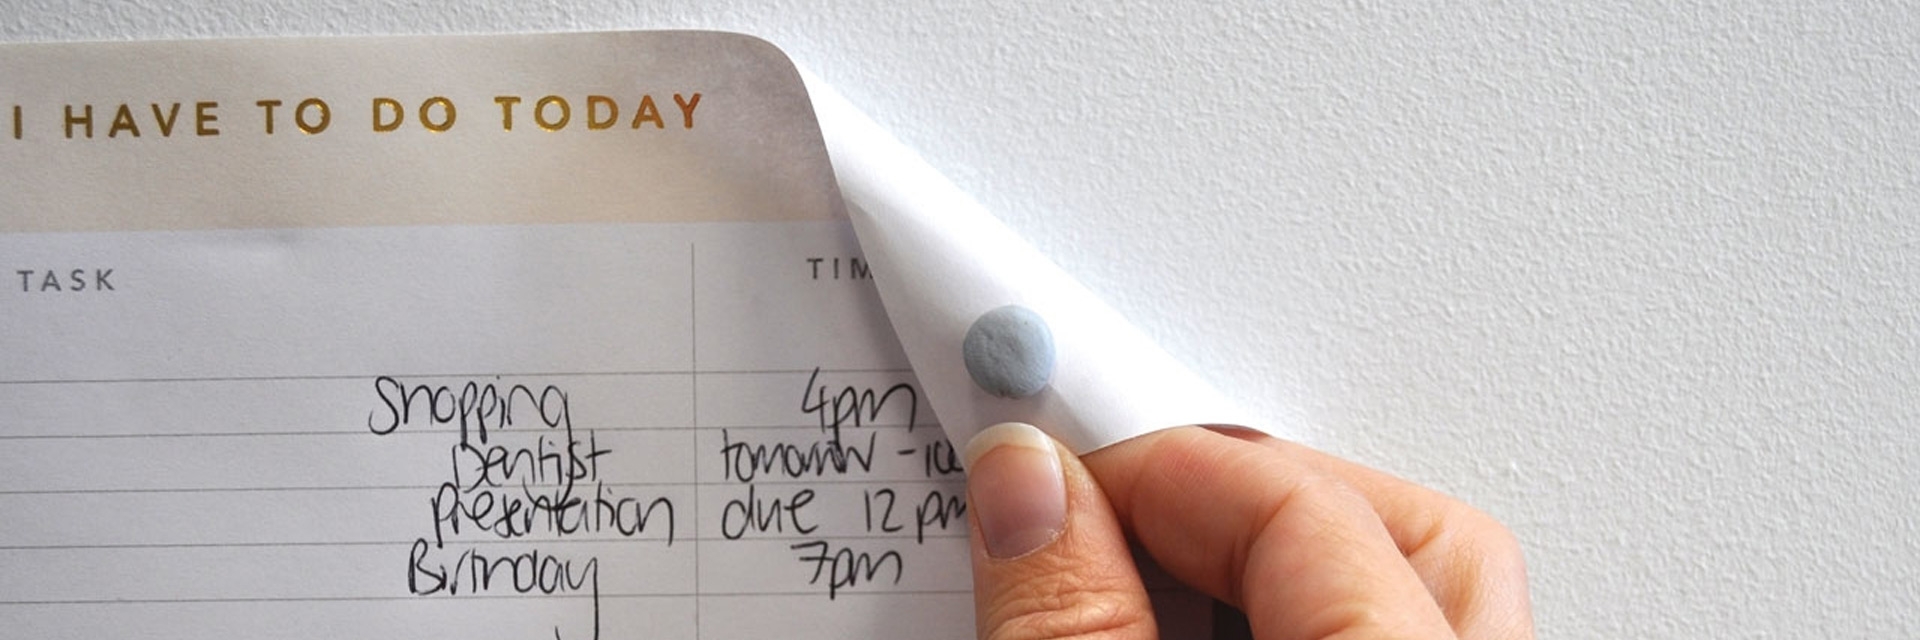 I HAVE TO DO TODAY
TASK TIM
Shopping 4pm
Dentist tomorrow -
Presentation due 12 pm
Birthday 7pm